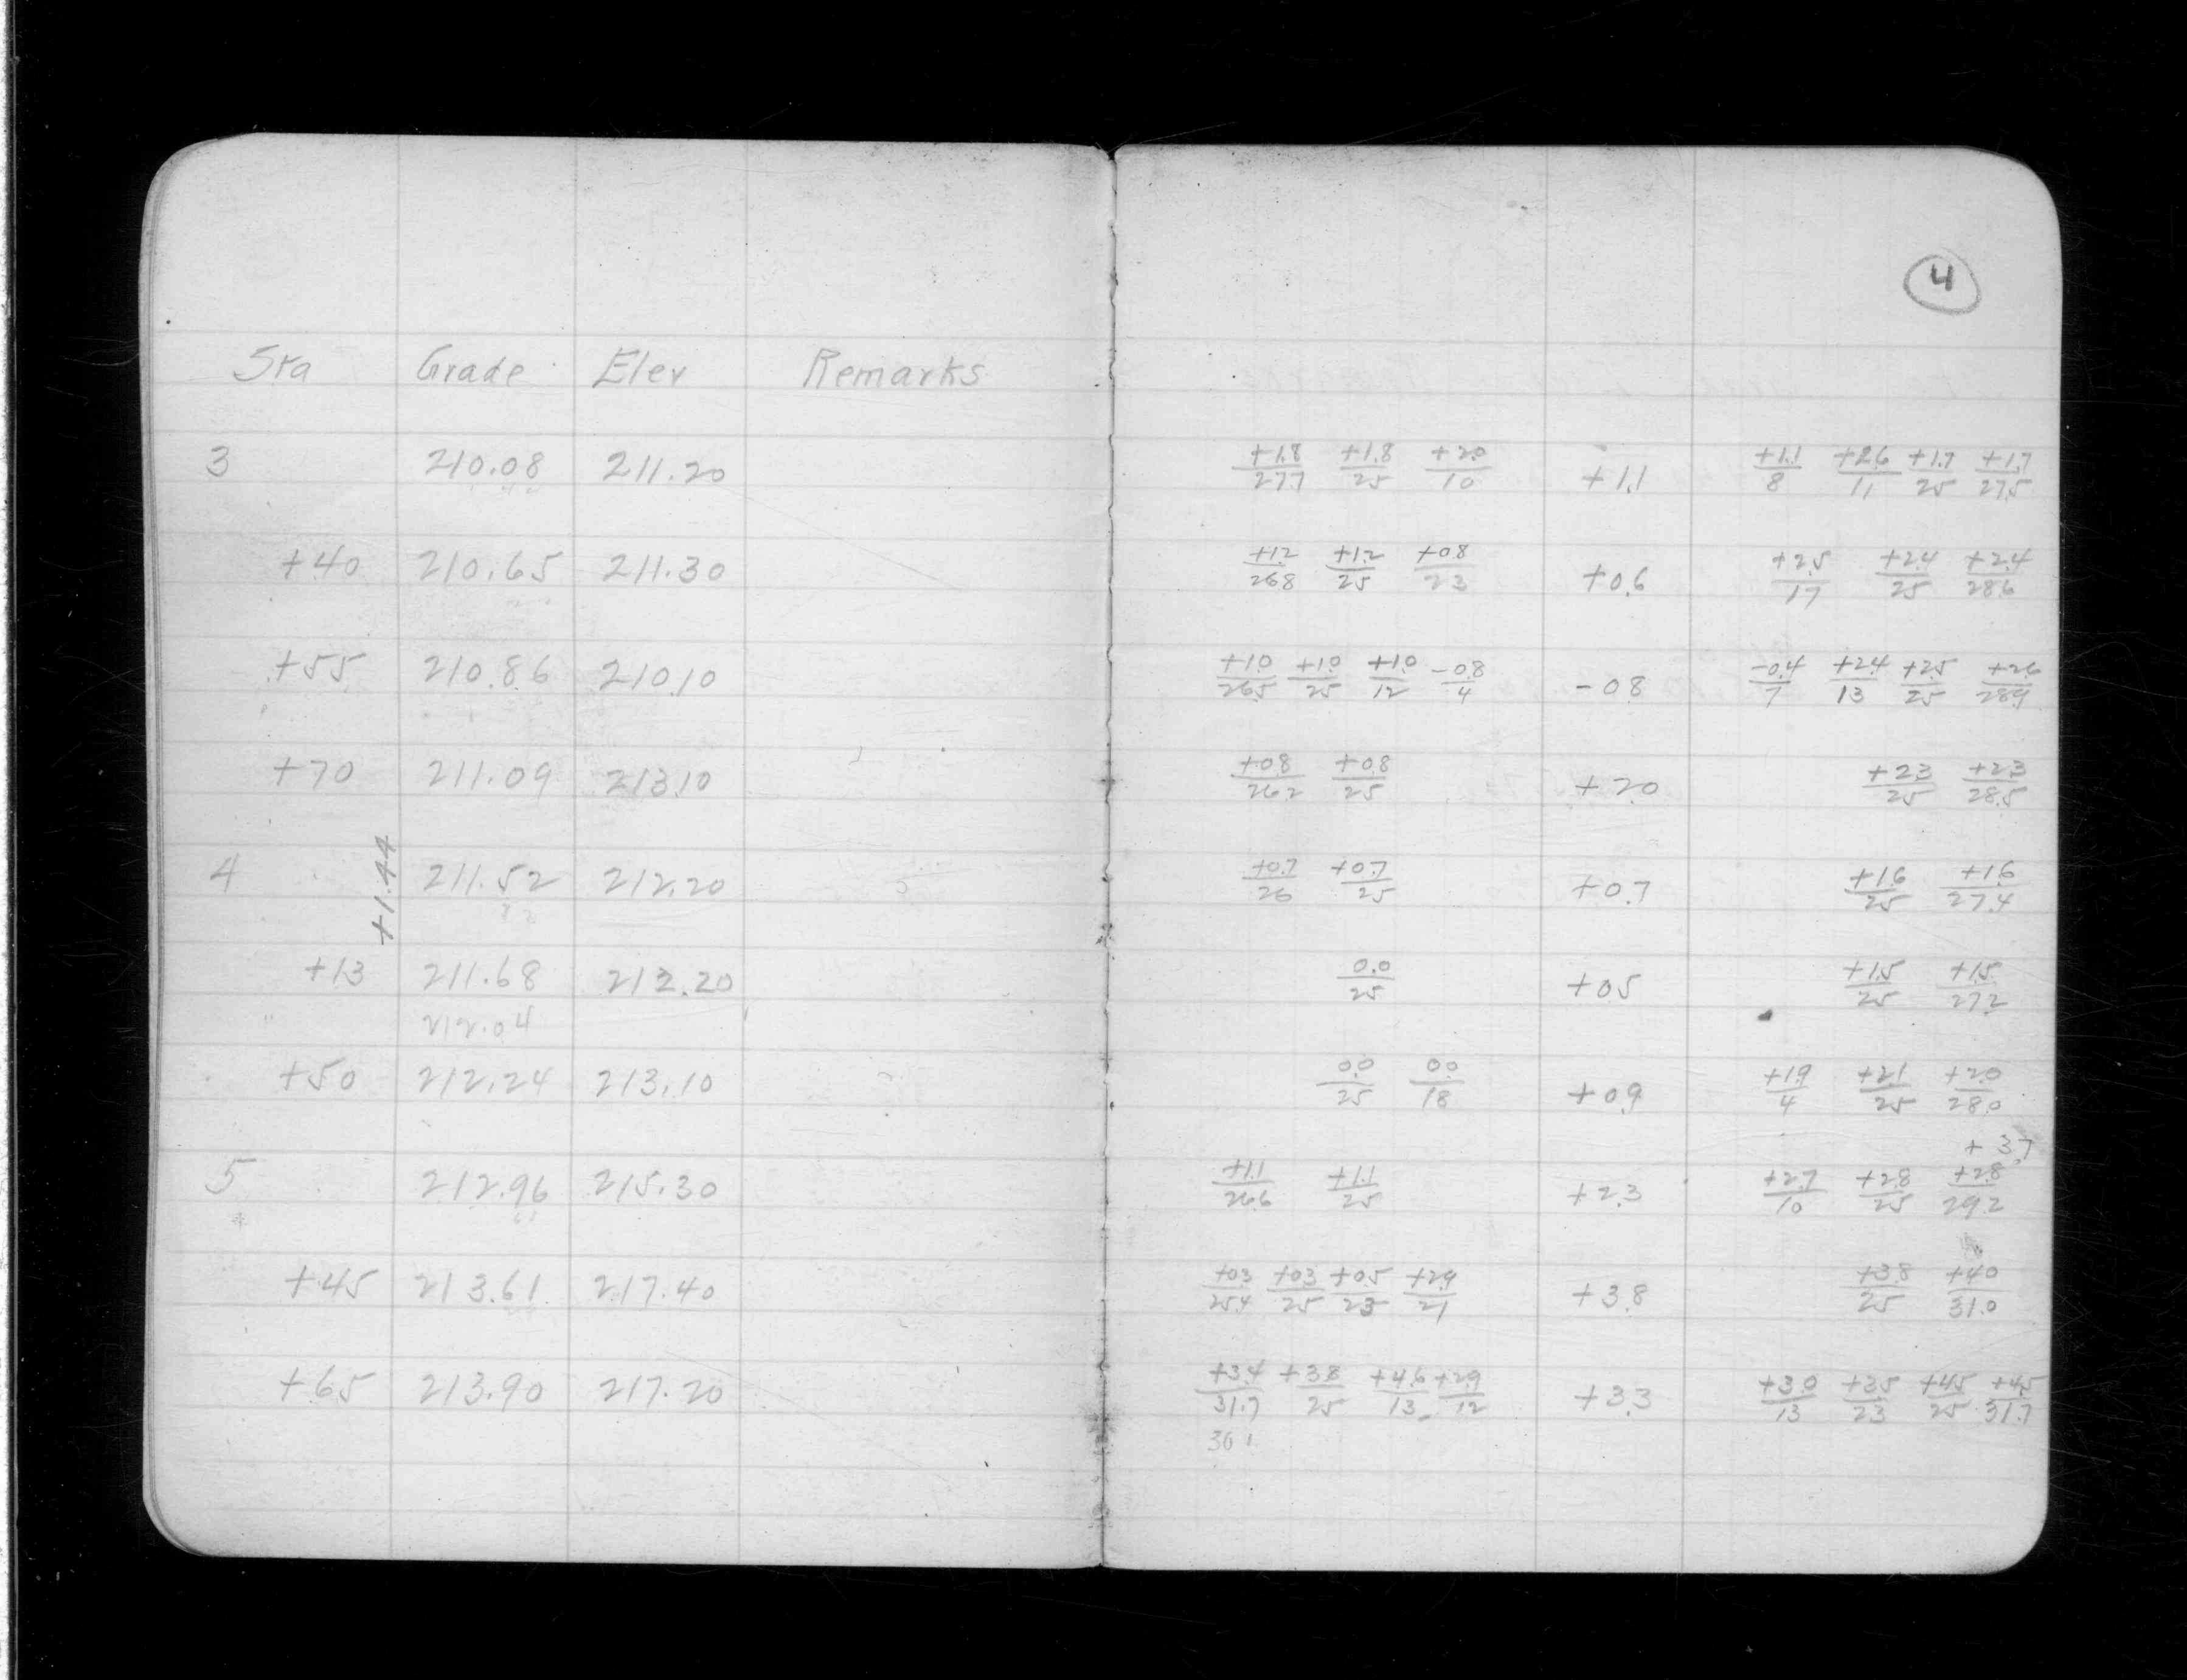 4
Sta Grade Elev Remarks
3 210.08 211.20 +1.8/27.7 +1.8/25 +2.0/10 +1.1 +1.1/8 +2.6/11 +1.7/25 +1.7/27.5
+40 210.65 211.30 +1.2/26.8 +1.2/25 +0.8/23 +0.6 +2.5/17 +2.4/25 +2.4/28.6
+55 210.86 210.10 +1.0/26.5 +1.0/25 +1.0/12 -0.8/4 -0.8 -0.4/7 +2.4/13 +2.5/25 +2.6/28.9
+70 211.09 213.10 +0.8/26.2 +0.8/25 +2.0 +2.3/25 +2.3/28.5
+1.44
4 211.52 212.20 +0.7/26 +0.7/25 +0.7 +1.6/25 +1.6/27.4
+13 211.68 212.20 0.0/25 +0.5 +1.5/25 +1.5/27.2
" 212.04
+50 212.24 213.10 0.0/25 0.0/18 +0.9 +1.9/4 +2.1/25 +2.0/28.0
+3.7
5 212.96 215.30 +1.1/26.6 +1.1/25 +2.3 +2.7/10 +2.8/25 +2.8/29.2
+45 213.61 217.40 +0.3/25.4 +0.3/25 +0.5/23 +2.9/21 +3.8 +3.8/25 +4.0/31.0
+65 213.90 217.20 +3.4/31.7 +3.8/25 +4.6/13 +2.9/12 +3.3 +3.0/13 +3.5/23 +4.5/25 +4.5/31.7
30.1